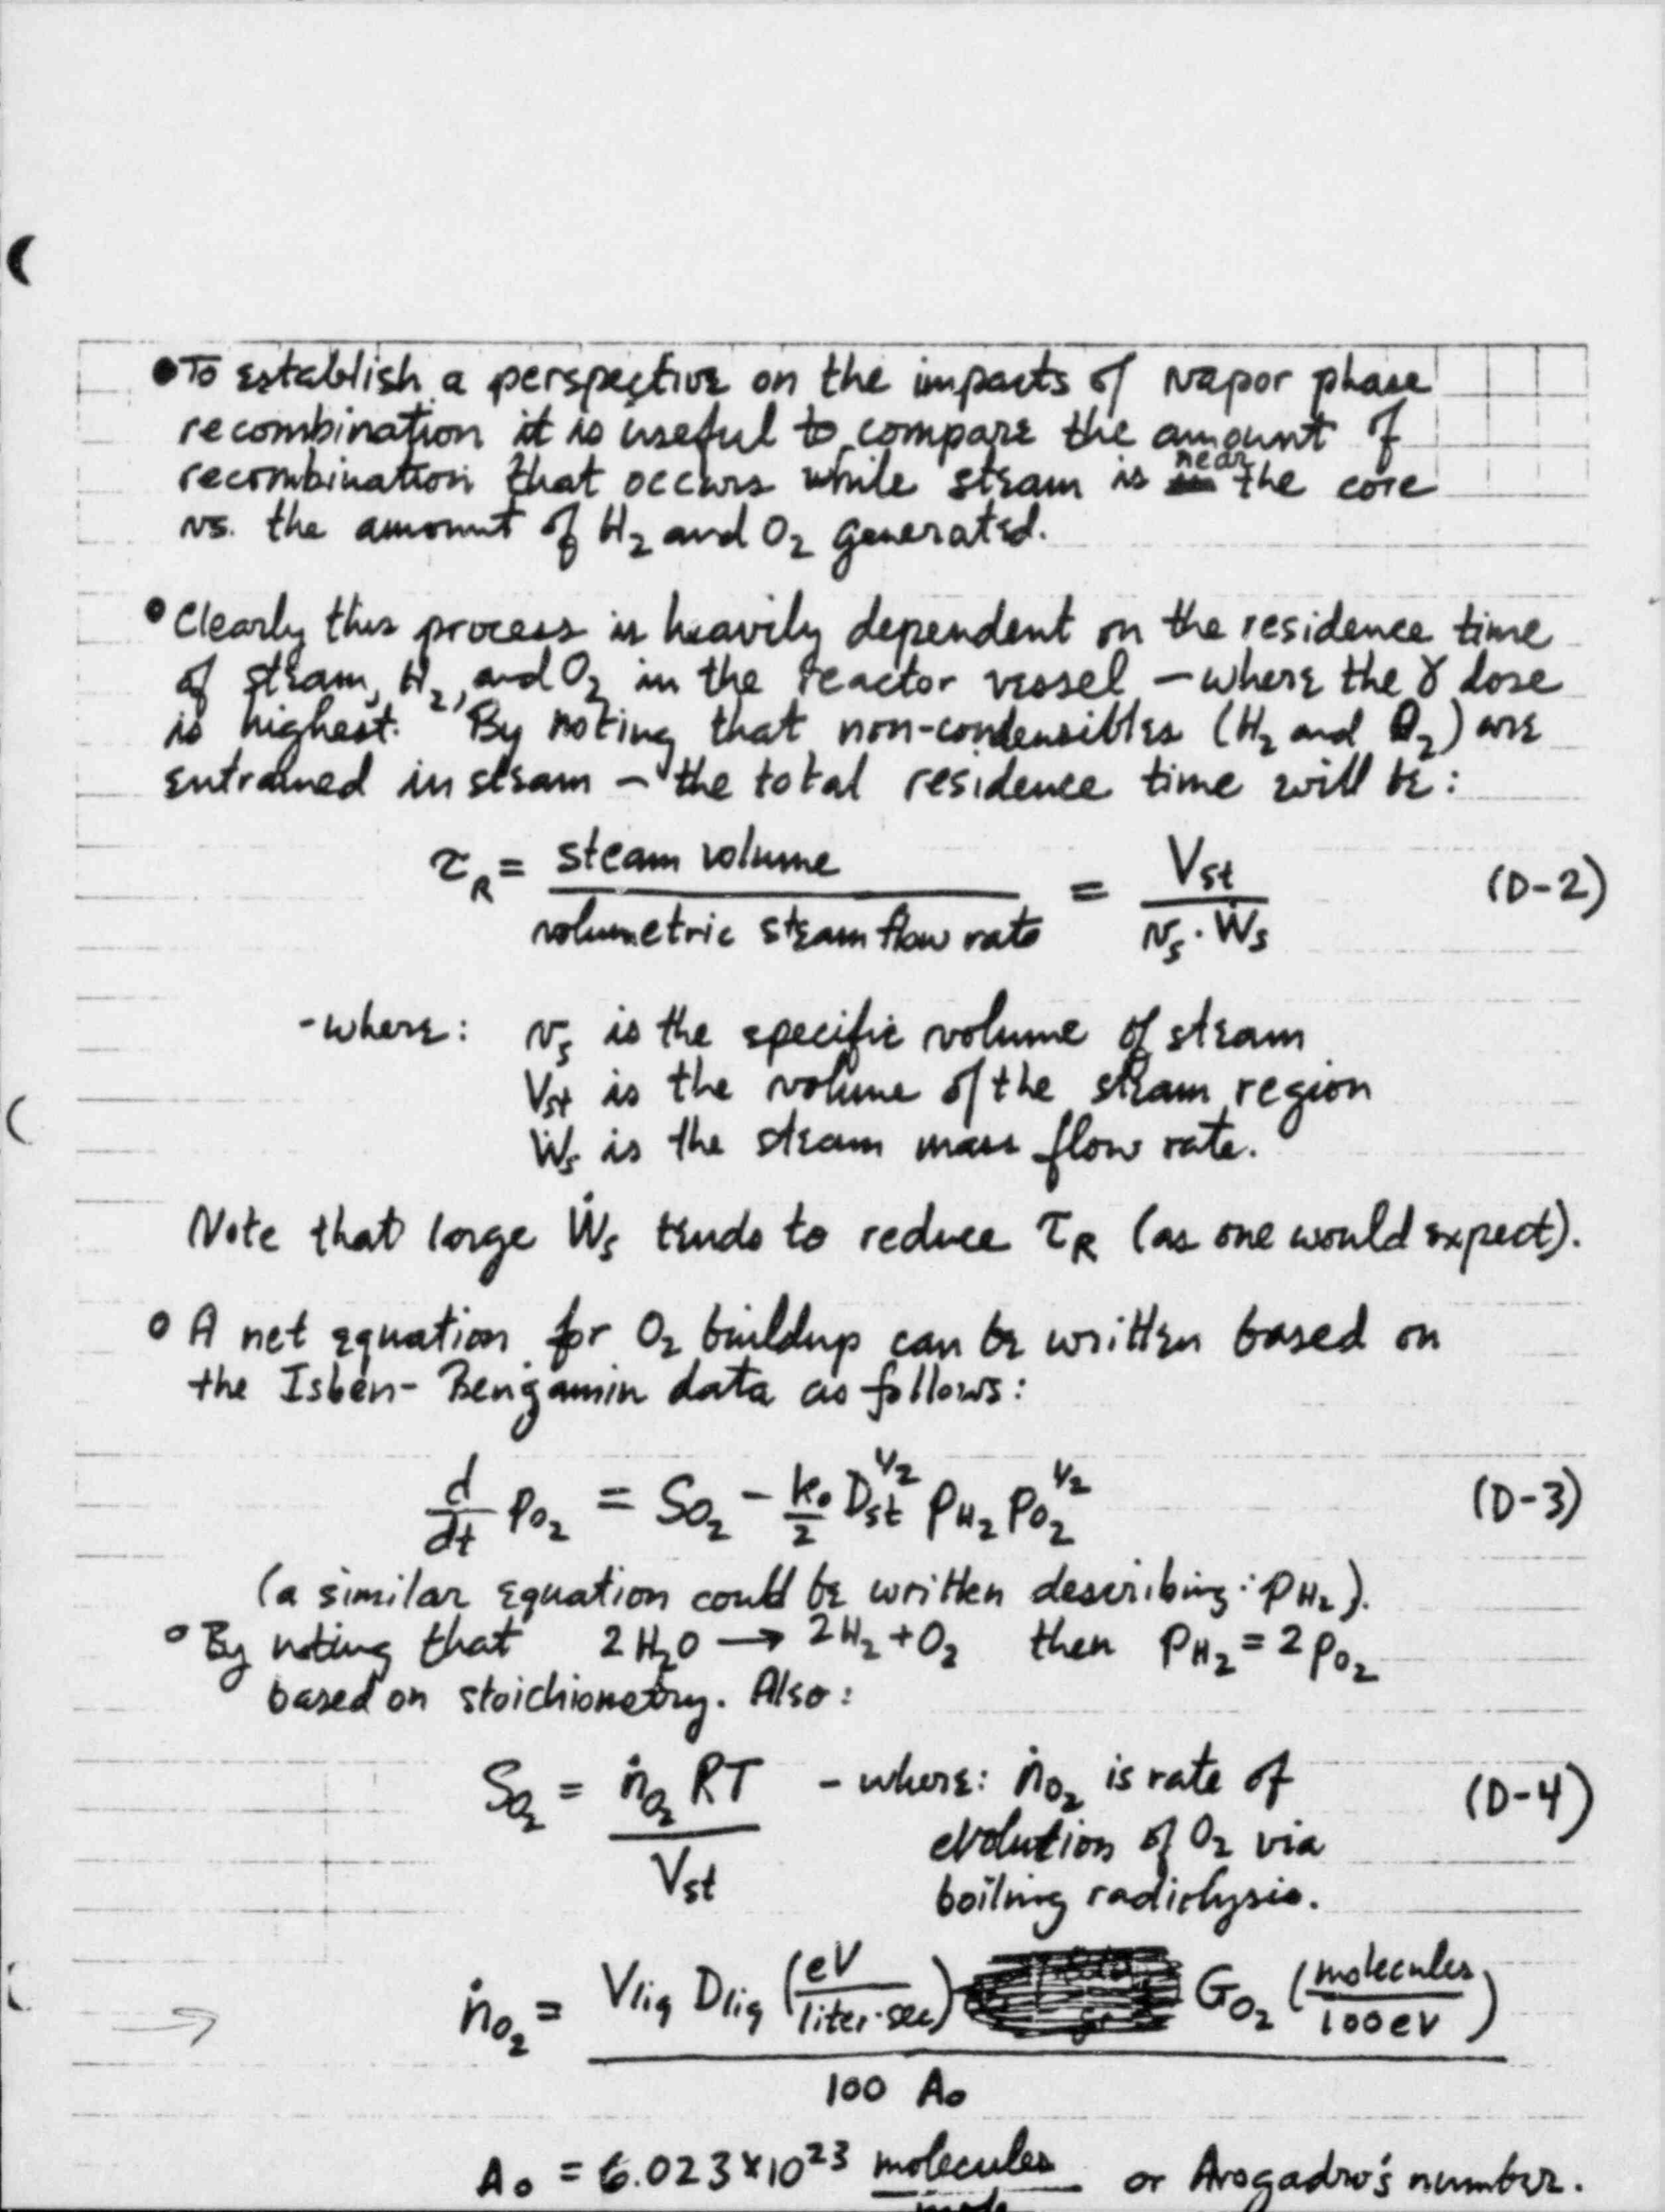 • To establish a perspective on the impacts of vapor phase
recombination it is useful to compare the amount of
recombination that occurs while steam is near the core
vs. the amount of H₂ and O₂ generated.
• Clearly this process is heavily dependent on the residence time
of steam, H₂, and O₂ in the reactor vessel – where the γ dose
is highest. By noting that non-condensibles (H₂ and O₂) are
entrained in steam – the total residence time will be:
τ_R = steam volume / volumetric steam flow rate = V_st / (v_s · Ẇ_s) (D-2)
- where: v_s is the specific volume of steam
V_st is the volume of the steam region
Ẇ_s is the steam mass flow rate.
Note that large Ẇ_s tends to reduce τ_R (as one would expect).
° A net equation for O₂ buildup can be written based on
the Isben-Bengamin data as follows:
d/dt p_O₂ = S_O₂ - k₀/2 D_st^1/2 p_H₂ p_O₂^1/2 (D-3)
(a similar equation could be written describing: p_H₂).
° By noting that 2H₂O → 2H₂ + O₂ then p_H₂ = 2p_O₂
based on stoichiometry. Also:
S_O₂ = ṅ_O₂ RT / V_st - where: ṅ_O₂ is rate of (D-4)
evolution of O₂ via
boiling radiolysis.
→ ṅ_O₂ = V_liq D_liq (eV / liter·sec) G_O₂ (molecules / 100 eV) / 100 A₀
A₀ = 6.023 × 10²³ molecules / mole or Avogadro's number.